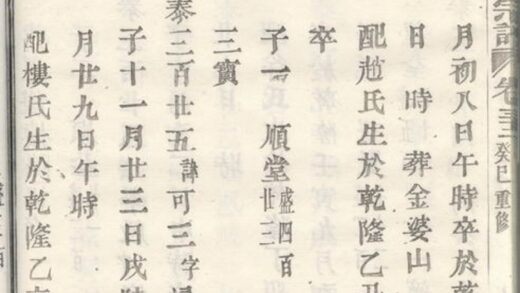 宗譜 卷 癸巳重修
月初八日午時卒於
日 時 葬金婆山
配趙氏生於乾隆乙
卒
子一 順堂 盛四百廿三
三寳
泰三百廿五 諱可三字
子十一月廿三日戌時
月廿九日午時
配樓氏生於乾隆乙